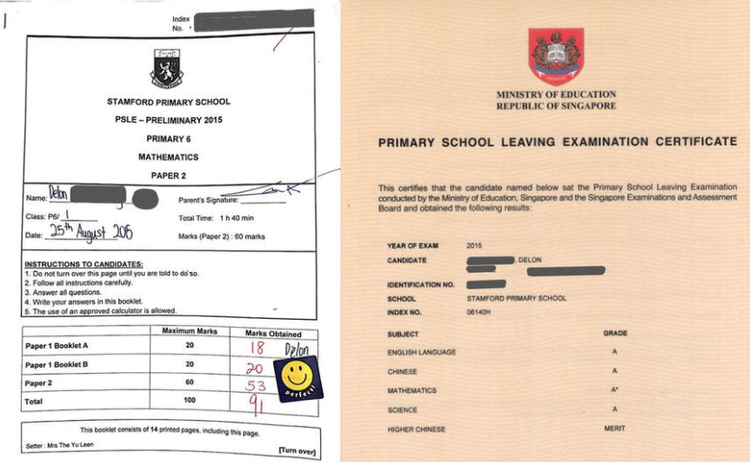 Index
No.
STAMFORD PRIMARY SCHOOL
PSLE – PRELIMINARY 2015
PRIMARY 6
MATHEMATICS
PAPER 2
Name: Delon
Parent's Signature:
Class: P6/ 1
Total Time: 1 h 40 min
Date: 25th August 2015
Marks (Paper 2) : 60 marks
INSTRUCTIONS TO CANDIDATES:
1. Do not turn over this page until you are told to do so.
2. Follow all instructions carefully.
3. Answer all questions.
4. Write your answers in this booklet.
5. The use of an approved calculator is allowed.
Maximum Marks Marks Obtained
Paper 1 Booklet A 20 18 Delon
Paper 1 Booklet B 20 20
Paper 2 60 53
perfect!
Total 100 91
This booklet consists of 14 printed pages, including this page.
Setter : Mrs The Yu Leen
[Turn over]
MINISTRY OF EDUCATION
REPUBLIC OF SINGAPORE
PRIMARY SCHOOL LEAVING EXAMINATION CERTIFICATE
This certifies that the candidate named below sat the Primary School Leaving Examination
conducted by the Ministry of Education, Singapore and the Singapore Examinations and Assessment
Board and obtained the following results:
YEAR OF EXAM 2015
CANDIDATE , DELON
IDENTIFICATION NO.
SCHOOL STAMFORD PRIMARY SCHOOL
INDEX NO. 06140H
SUBJECT GRADE
ENGLISH LANGUAGE A
CHINESE A
MATHEMATICS A*
SCIENCE A
HIGHER CHINESE MERIT